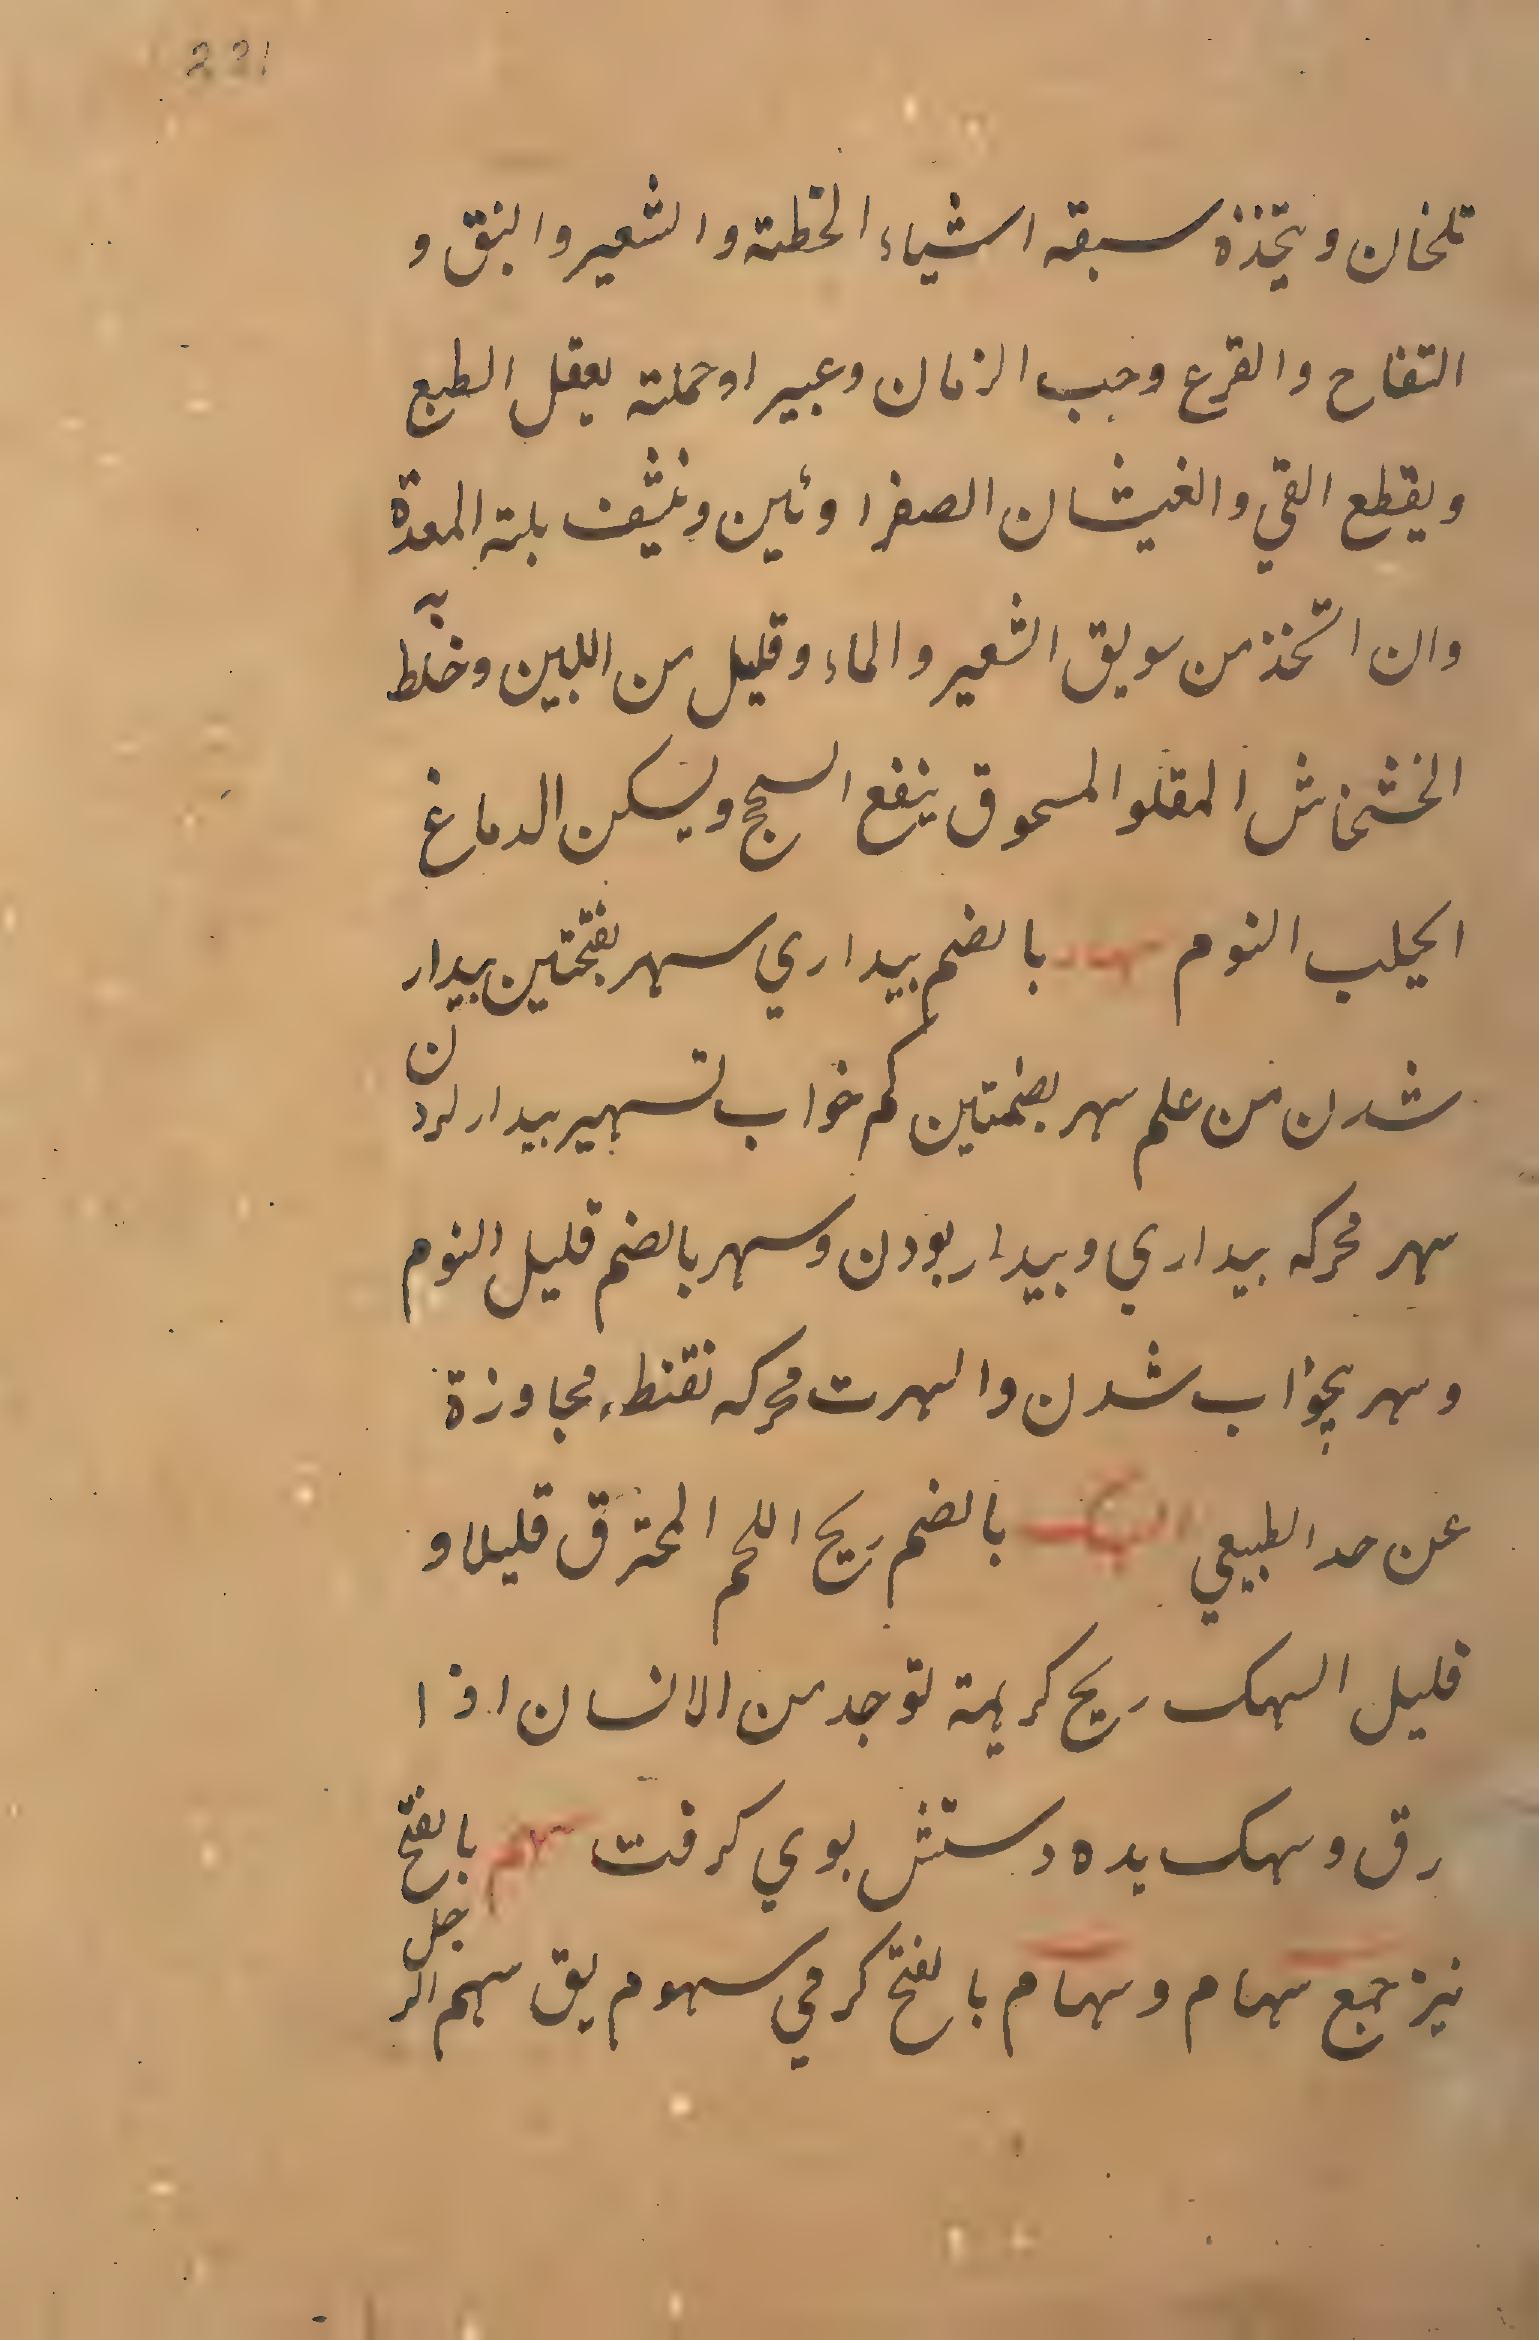 221
تلخان و یتخذه سبقه اشیاء الخطته والشعیر والنبق و
التفاح والقرع وحب الزمان وعبیرا وحملته یعقل الطبع
ویقطع القي والغیثان الصفرا وئین ونثیف بلته المعدة
وان اتخذ من سویق الشعیر والماء وقلیل من اللبین وخلط به
الخشخاش المقلو المسحوق ینفع السحج ویسکن الدماغ
الحیلب النوم سهاد بالضم بیداري سهر بفتحتین بیدار
شدن من علم سهر بضمتین کم خواب تسهیر بیدار کردن
سهر محرکه بیداري و بیدار بودن وسهر بالضم قلیل النوم
وسهر بیخواب شدن والسهرت محرکه نقنطء مجاوزة
عن حد الطبیعي السهک بالضم ریح اللحم المحترق قلیلا و
قلیل السهک ریح کریهة توجد من الانسان اذا
رق وسهک یده دستش بوي کرفت سهم بالفتح
نیز جمع سهام و سهام بالفتح کرمي سهوم یق سهم الرجل